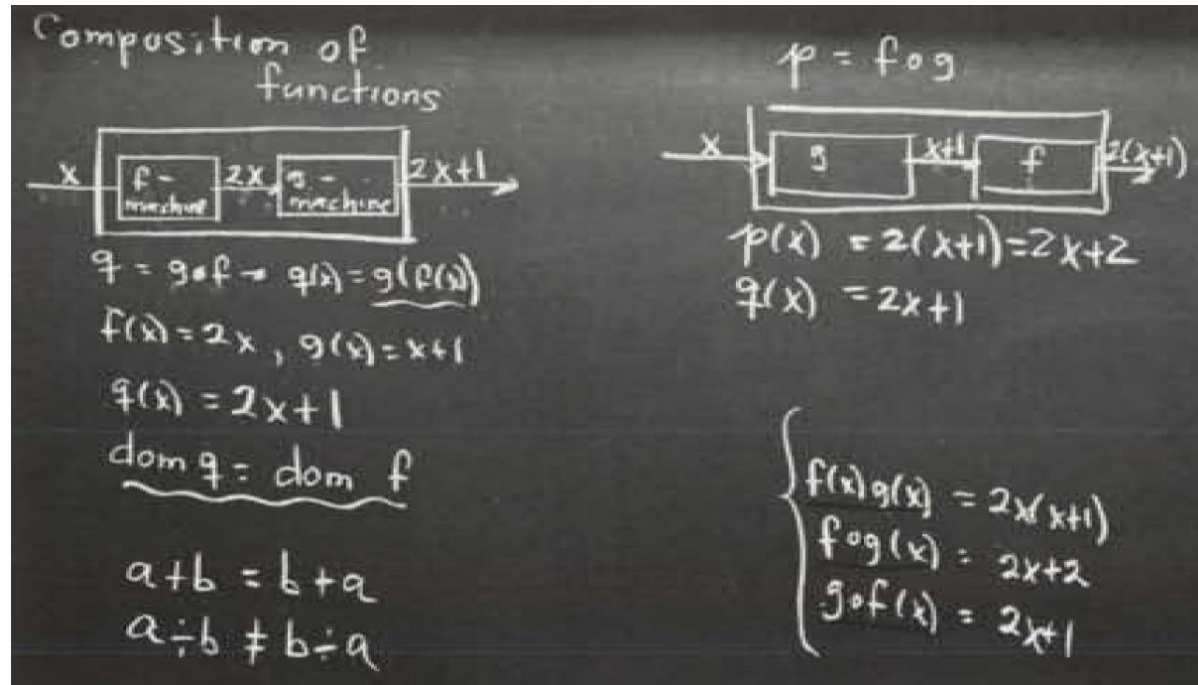 Composition of
functions
x f-machine 2x g-machine 2x+1
q = g∘f → q(x) = g(f(x))
f(x) = 2x, g(x) = x+1
q(x) = 2x+1
dom q = dom f
a+b = b+a
a÷b ≠ b÷a
p = f∘g
x g x+1 f 2(x+1)
p(x) = 2(x+1) = 2x+2
q(x) = 2x+1
f(x)g(x) = 2x(x+1)
f∘g(x) = 2x+2
g∘f(x) = 2x+1